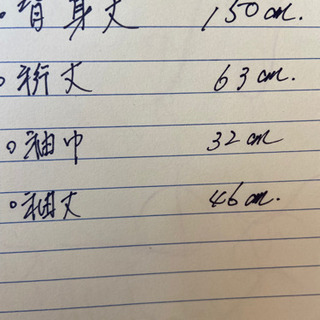 ○背身丈 150cm.
○裄丈 63cm.
○袖巾 32cm
○袖丈 46cm.